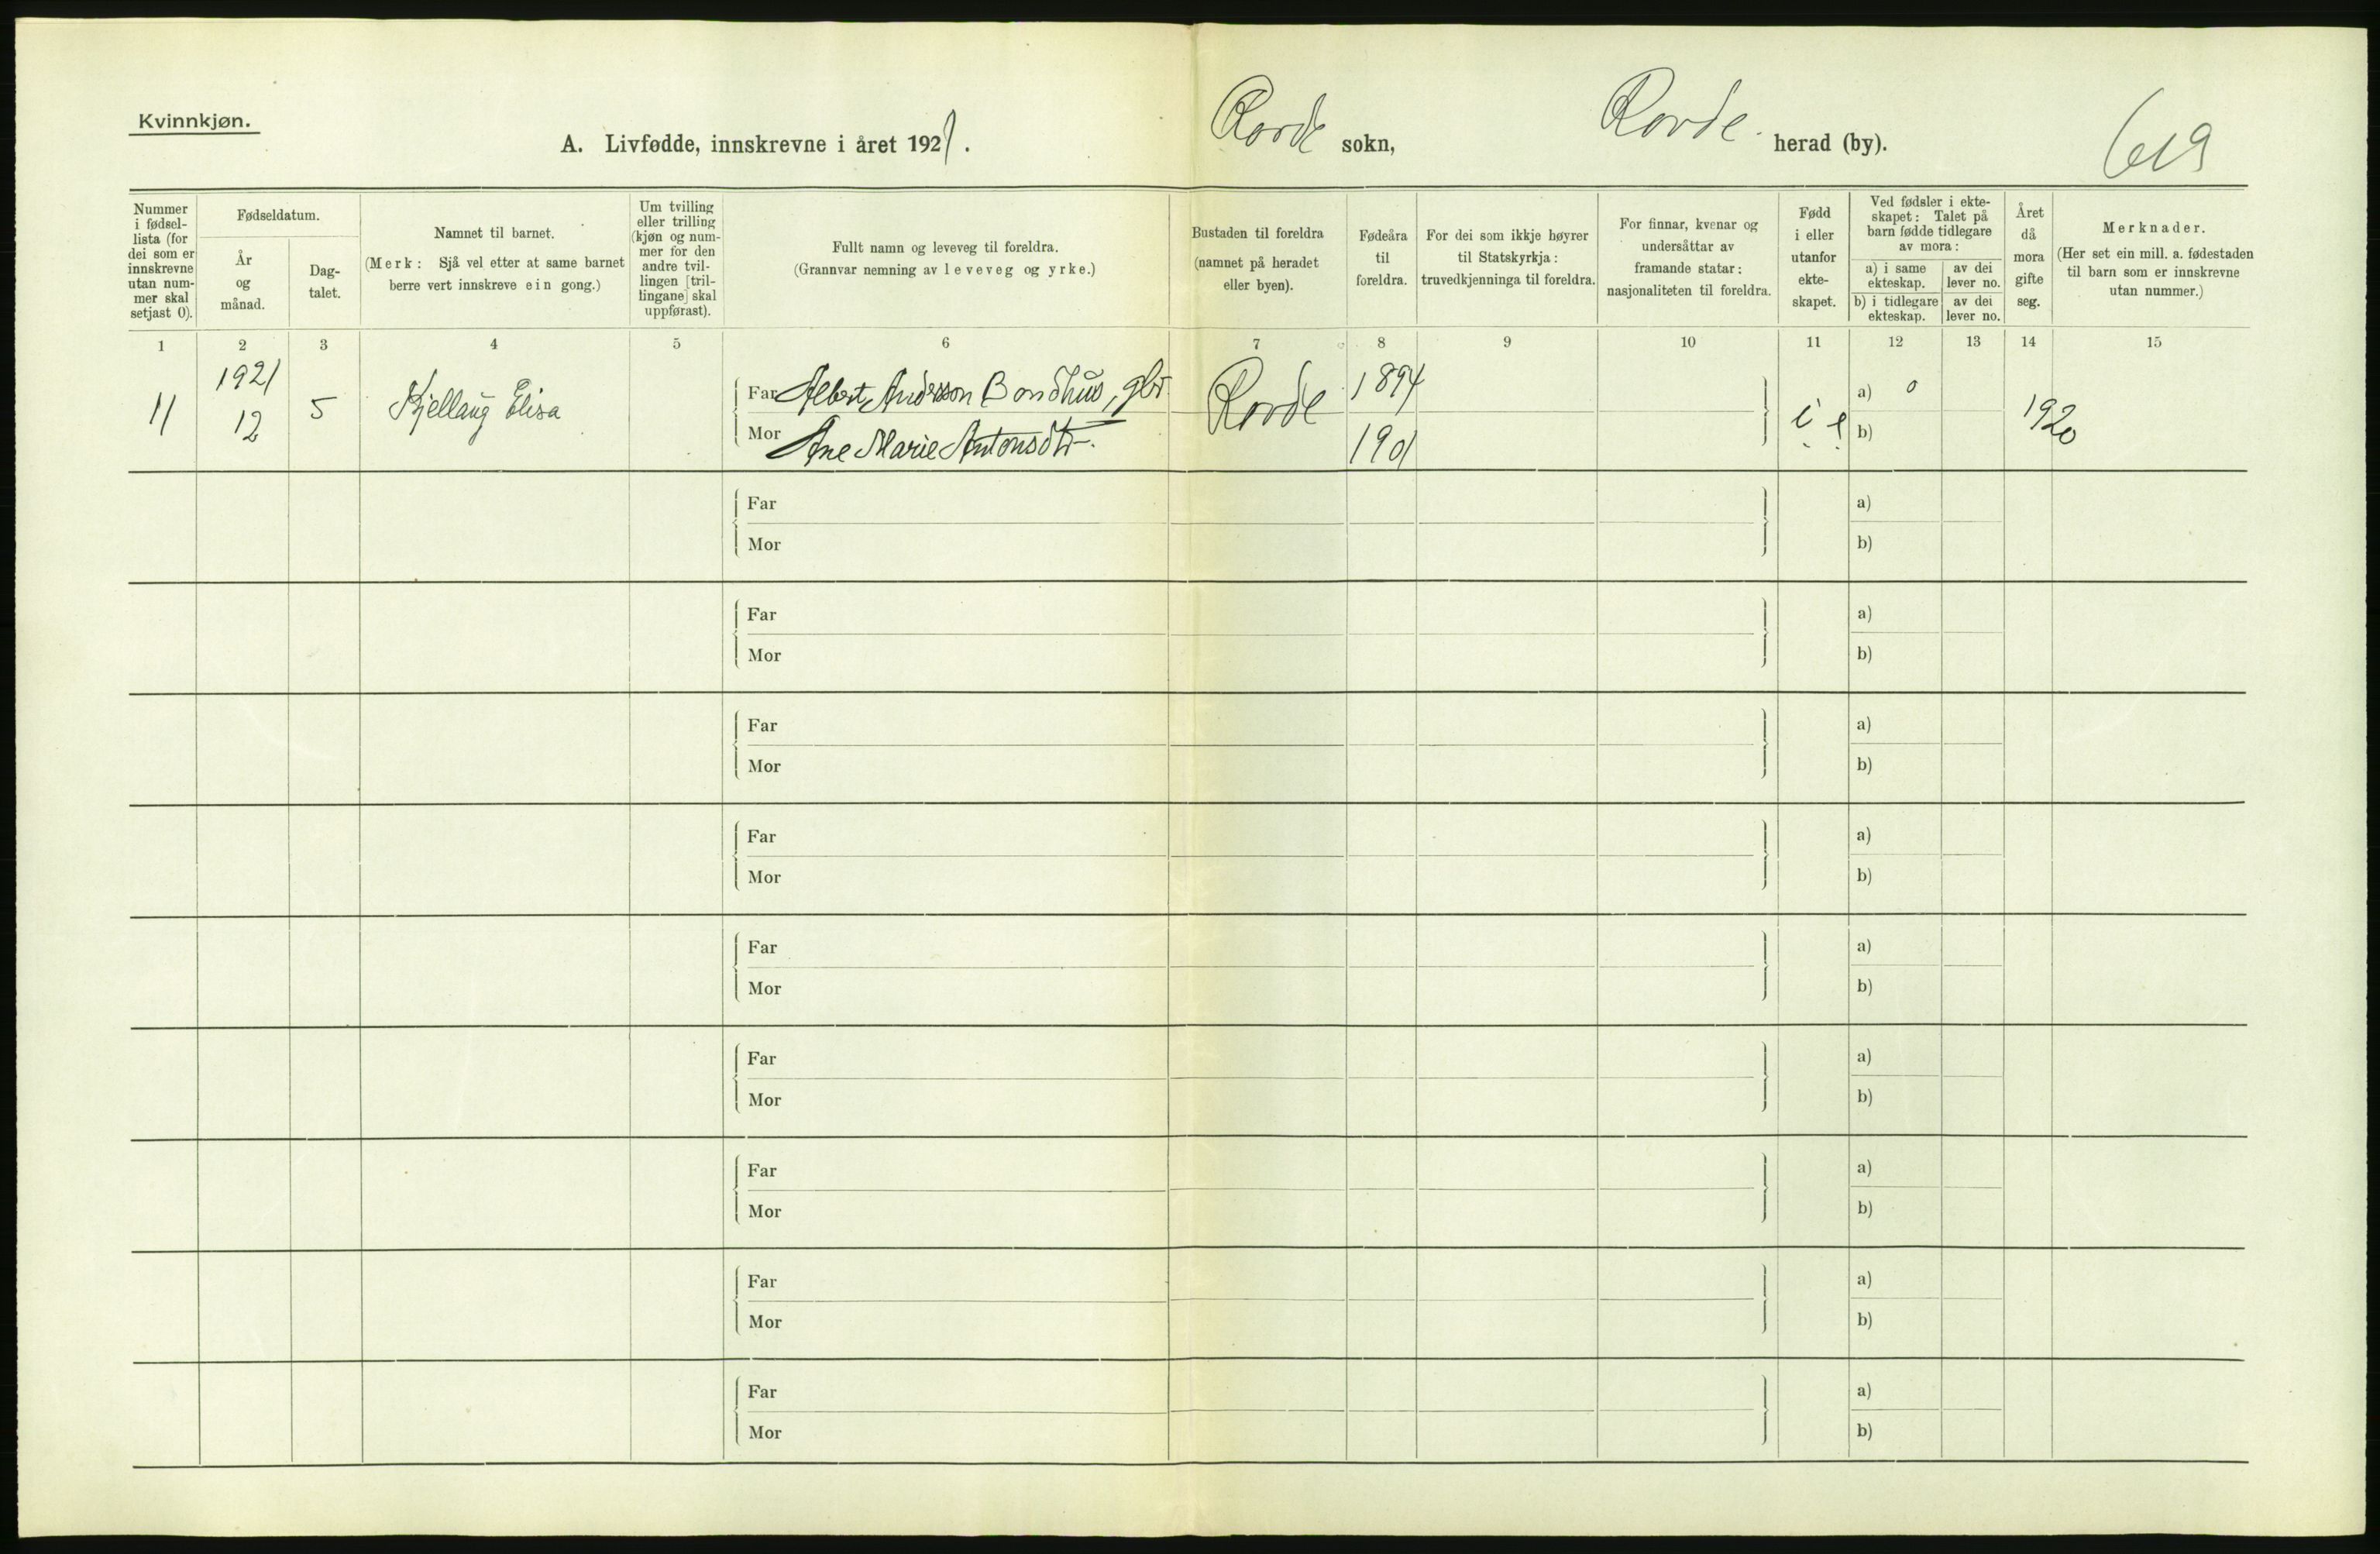 Kvinnkjøn.
A. Livfødde, innskrevne i året 1921.
sokn,
herad (by).
619
Nummer
i fødsel-
lista (for
dei som er
innskrevne
utan num-
mer skal
setjast 0).
Fødseldatum.
År
og
månad.
Dag-
talet.
Namnet til barnet.
(Merk: Sjå vel etter at same barnet
berre vert innskreve ein gong.)
Um tvilling
eller trilling
(kjøn og num-
mer for den
andre tvil-
lingen [tril-
lingane] skal
uppførast).
Fullt namn og leveveg til foreldra.
(Grannvar nemning av leveveg og yrke.)
Bustaden til foreldra
(namnet på heradet
eller byen).
Fødeåra
til
foreldra.
For dei som ikkje høyrer
til Statskyrkja:
truvedkjenninga til foreldra.
For finnar, kvenar og
undersåttar av
framande statar:
nasjonaliteten til foreldra.
Fødd
i eller
utanfor
ekte-
skapet.
Ved fødsler i ekte-
skapet: Talet på
barn fødde tidlegare
av mora:
a) i same
ekteskap.
av dei
lever no.
b) i tidlegare
ekteskap.
av dei
lever no.
Året
då
mora
gifte
seg.
Merknader.
(Her set ein mill. a. fødestaden
til barn som er innskrevne
utan nummer.)
1 2 3 4 5 6 7 8 9 10 11 12 13 14 15
11 1921 12 5 Kjellaug Elisa
Far Albert Andersson Bondhus, gbr. 1894 a) 0
Mor Ane Marie Antonsdtr. 1901 i e b) 1920
Far a)
Mor b)
Far a)
Mor b)
Far a)
Mor b)
Far a)
Mor b)
Far a)
Mor b)
Far a)
Mor b)
Far a)
Mor b)
Far a)
Mor b)
Far a)
Mor b)